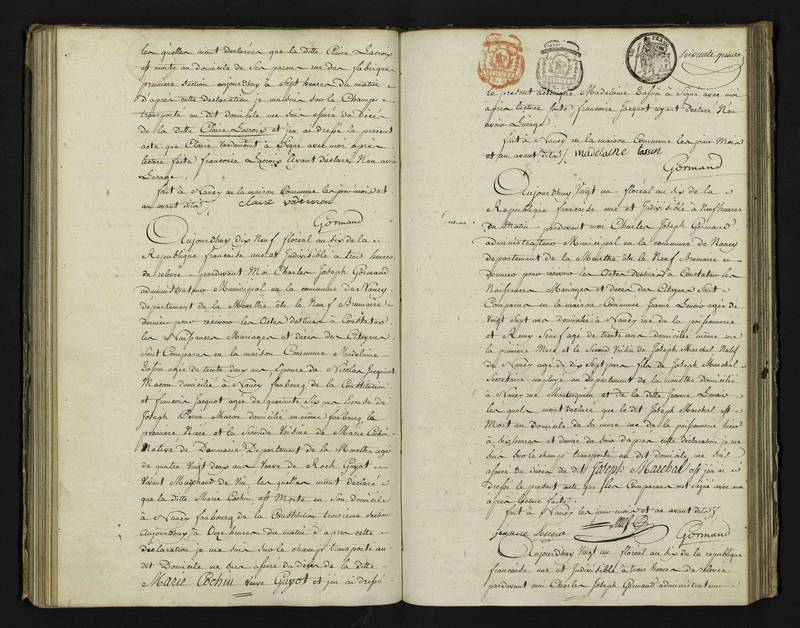 les quelles mont déclarées que la ditte Claire Lacroix
est morte au domicile de ses parens rue des fabriques
première section aujourd'huy à Sept heures du matin
d'après cette déclaration je me suis sur le Champ
transporté au dit domicile me suis assuré du Décès
de la ditte Claire Lacroix et j'en ai dressé le present
acte que Claire à Signé avec moi après
lecture faite francoise Lacroix ayant déclaré N'en avoir
L'usage.
fait à Nancy en la maison Commune les jour mois et
an avant dits
claire
Gormand
Aujourdhuy dix Neuf floréal an six de la
Republique francaise une et Indivisible à trois heures
de relevée pardevant Moi Charles Joseph Gormand
administrateur Municipal en la commune de Nancy
département de la Meurthe élu le Neuf Brumaire
dernier pour recevoir les Actes destinés à Constater
les Naissances Mariages et décès des Citoyens
Sont Comparus en la maison Commune Madelaine
Lassin agée de trente deux ans Epouse de Nicolas Jacquinot
Macon domicilié à Nancy faubourg de la Constitution
et francoise Jacquot agée de quarante Six ans Epouse de
Joseph Macon domicilié au même faubourg la
première Niece et la Seconde Voisine de Marie Cochin
Native de Département de la Meurthe agée
de quatre Vingt douze ans Veuve de Roch Guyot
Vivant Marchand de Vin, les quelles mont déclaré
que la ditte Marie Cochin est Morte en Son domicile
à Nancy faubourg de la Constitution troisieme Section
Aujourdhuy à Onze heures du matin d'apres cette
déclaration je me suis sur le champ transporté au
dit Domicile me suis assuré du décès de la ditte
Marie Cochin veuve Guyot et j'en ai dressé
Soixante quinze
le présent acte que Madelaine Lassin à Signé avec moi
après lecture faite, francoise Jacquot ayant déclaré N'en
avoir L'usage.
fait à Nancy en la maison Commune les jour Mois
et an avant dits madelaine lassin
Gormand
Aujourdhuy Vingt un floréal an six de la
Republique francaise une et Indivisible à Neuf heures
du Matin pardevant moi Charles Joseph Gormand
administrateur Municipal en la commune de Nancy
departement de la Meurthe élu le Neuf Brumaire
dernier pour recevoir les Actes destinés à Constater les
Naissances Mariages et décès des Citoyens Sont
Comparus en la maison Commune Jeanne agée de
Vingt Sept ans domiciliée à Nancy rue de la poissonnerie
et Remy agé de trente ans domicilié même rue
la première Mere et le Second Voisin de Joseph Marchal Natif
de Nancy agé de dix Sept jours fils de Joseph Marchal
Secretaire employé au Departement de la meurthe domicilié
à Nancy rue et de la ditte Jeanne
les quels mont declaré que le dit Joseph Marchal est
Mort au domicile de sa mere rue de la poissonnerie hier
à dix heures et demie du Soir d'apres cette déclaration je me
suis sur le champ transporté au dit domicile me suis
assuré du décès du dit Joseph Marchal et j'en ai
dressé le présent acte que les Comparans ont Signé avec moi
après lecture faite.
fait à Nancy les jour mois et an avant dits
Gormand
Aujourdhuy Vingt un floréal an six de la republique
francaise une et Indivisible à trois heures de relevée
pardevant moi Charles Joseph Gormand administrateur